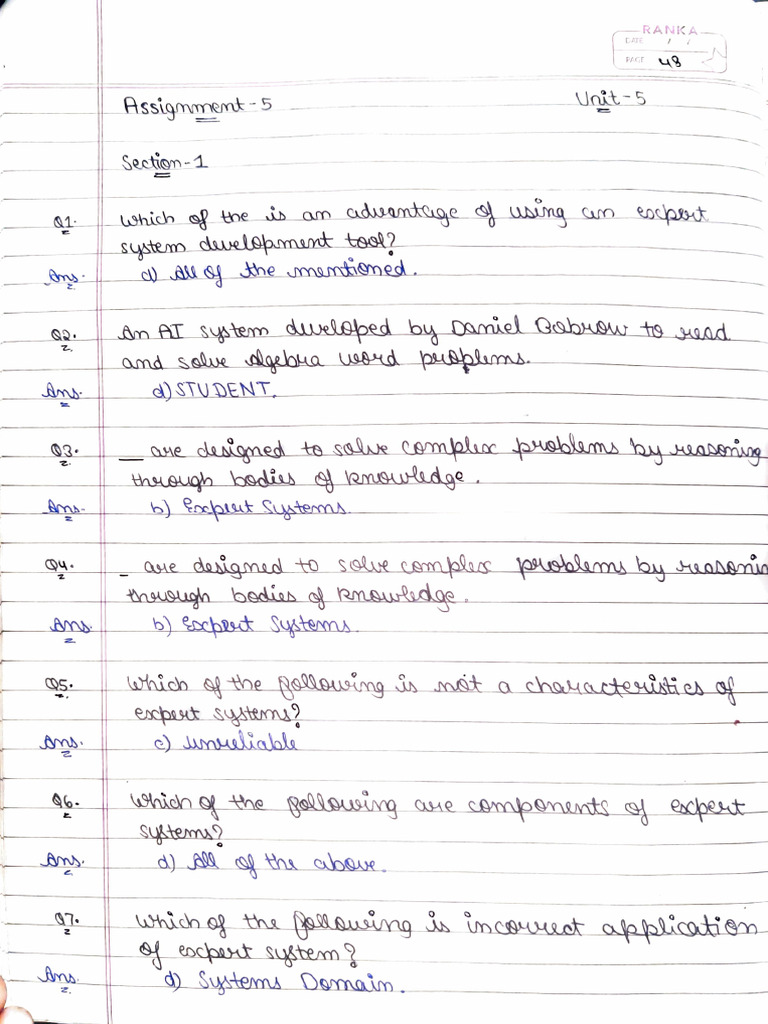 RANKA
DATE / /
PAGE 48
Assignment-5 Unit-5
Section-1
Q1. Which of the is an advantage of using an expert
system development tool?
Ans. d) All of the mentioned.
Q2. An AI system developed by Daniel Bobrow to read
and solve algebra word problems.
Ans. d) STUDENT.
Q3. __ are designed to solve complex problems by reasoning
through bodies of knowledge.
Ans. b) Expert Systems.
Q4. _ are designed to solve complex problems by reasoning
through bodies of knowledge.
Ans. b) Expert Systems.
Q5. Which of the following is not a characteristics of
expert systems?
Ans. c) unreliable
Q6. Which of the following are components of expert
systems?
Ans. d) All of the above.
Q7. Which of the following is incorrect application
of expert system?
Ans. d) Systems Domain.